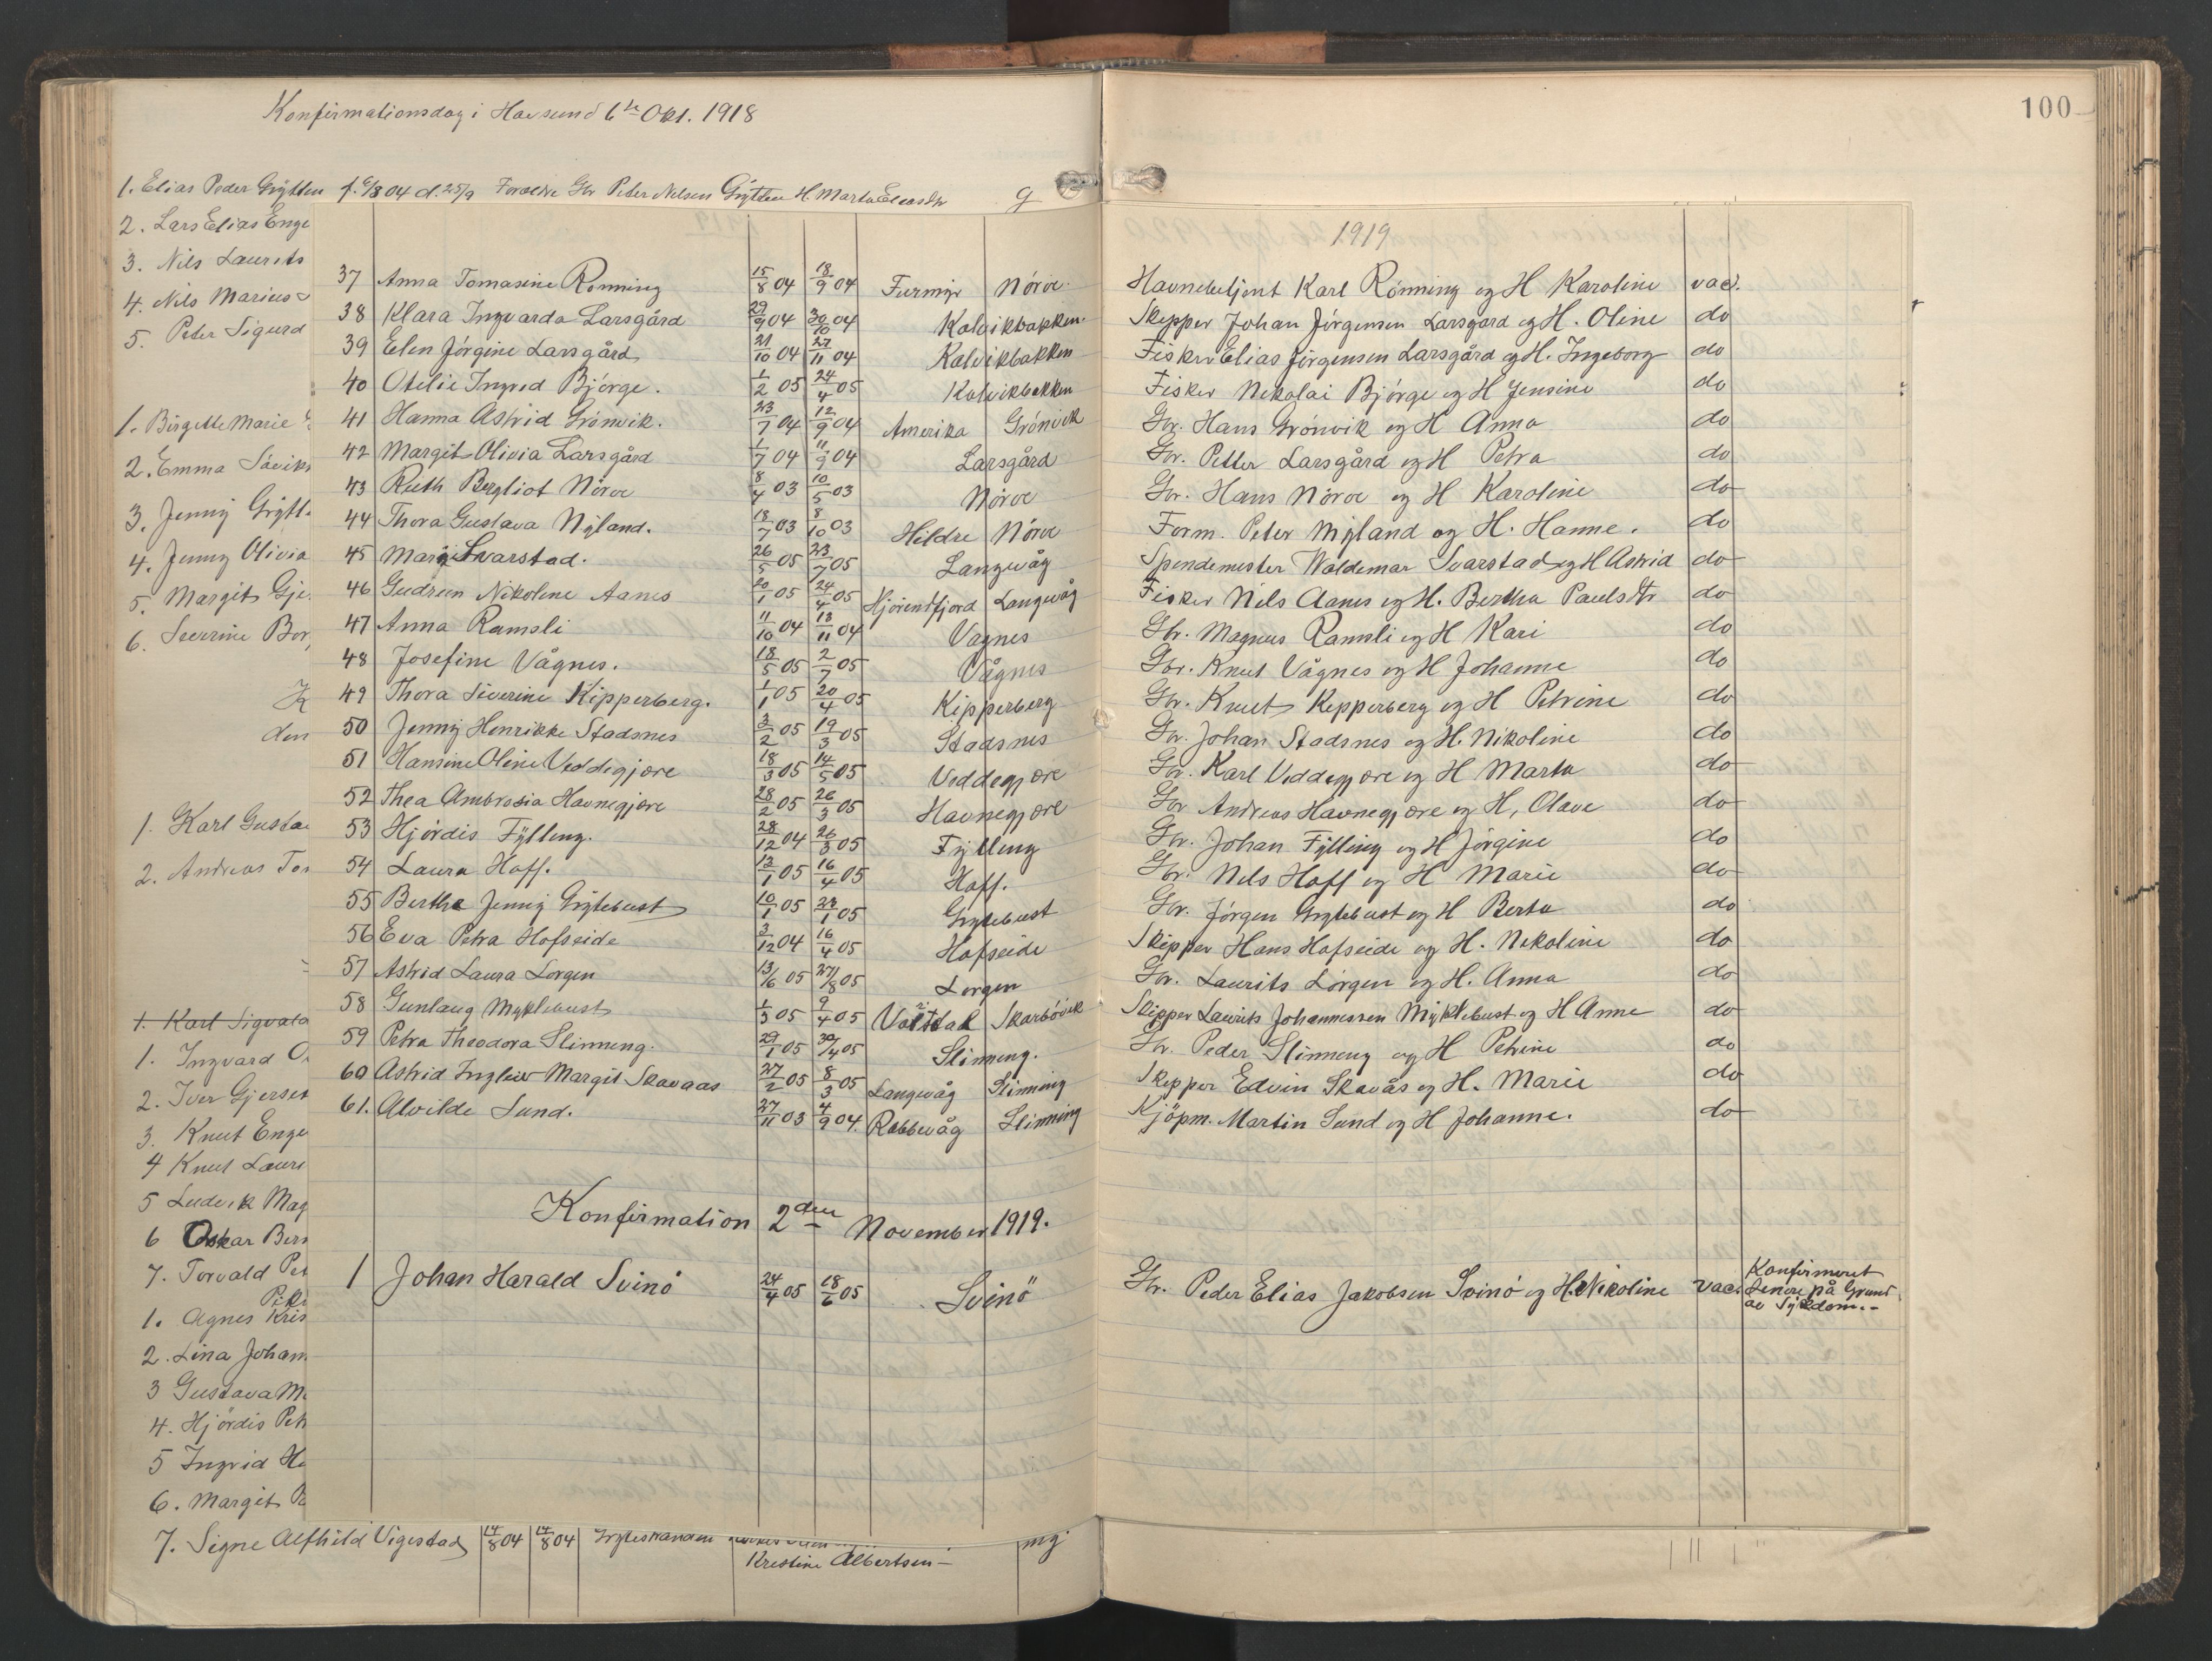 Konfirmationsdag i Havsund 6te Okt. 1918
100
1. Elias Peder Grytten f. 6/8 04 d. 25/9 Forældre Gbr Peter Nelsen Grytten H. Marta Eliasdtr g
2. Lars Elias Enge
3. Nils Laurits
4. Nils Marius
5. Peter Sigurd
1. Birgitte Marie
2. Emma Sävik
3. Jenny Grytt
4. Jenny Olivia
5. Margit Gje
6. Severine Bor
K
den
1. Karl Gusta
2. Andreas Tor
1. Karl Sigvald
1. Ingvard O
2. Iver Gjerset
3. Knut Enge
4 Knut Laur
5 Ludvik Mag
6 Oskar Bern
7. Torvald Pet
Pik
1. Agnes Kris
2. Lina Johan
3 Gustava M
4. Hjördis Pet
5 Ingrid H
6. Margit P
7. Signe Alfhild Vigestad 14/8 04 14/8 04 Grytestranden
Kristine Albertsen – mg
1919
37 Anna Tomasine Rönning 15/8 04 18/9 04 Furmyr Nörve Havnebetjent Karl Rönning og H Karoline vac.
38 Klara Ingvarda Larsgård 29/9 04 30/10 04 Kalvikbakken. Skipper Johan Jörgensen Larsgård og H. Oline do
39 Elen Jörgine Larsgård 21/10 04 27/11 04 Kalvikbakken Fisker Elias Jörgensen Larsgård og H. Ingeborg do
40 Otelie Ingrid Björge. 1/2 05 24/4 05 Kalvikbakken Fisker Nikolai Björge og H Jensine do
41 Hanna Astrid Grönvik. 23/7 04 12/9 04 Amerika Grönvik Gbr. Hans Grönvik og H Anna do
42 Margit Olivia Larsgård 1/7 04 11/9 04 Larsgård Gbr. Petter Larsgård og H Petra do
43 Ruth Bergliot Nörve 8/4 03 10/5 03 Nörve Gbr. Hans Nörve og H Karoline do
44 Thora Gustava Nyland. 18/7 03 8/10 03 Hildre Nörve Form. Peter Nyland og H. Hanne. do
45 Margit Svarstad. 26/5 05 23/7 05 Langevåg Spindemester Waldemar Svarstad og H Astrid do
46 Gudrun Nikoline Aanes 20/1 05 24/4 05 Hjörendfjord Langevåg Fisker Nils Aanes og H. Bertha Paulsdtr do
47 Anna Ramsli 11/10 04 13/11 04 Vagnes Gbr. Magnus Ramsli og H Kari do
48 Josefine Vågnes. 18/5 05 2/7 05 Vågnes Gbr. Knut Vågnes og H Johanne do
49 Thora Siverine Kipperberg. 1/1 05 20/4 05 Kipperberg Gbr. Knut Kipperberg og H Petrine do
50 Jenny Henrikke Stadsnes 3/2 05 19/3 05 Stadsnes Gbr. Johan Stadsnes og H. Nikoline do
51 Hansine Oline Veddegjære 18/3 05 14/5 05 Veddegjære Gbr. Karl Veddegjære og H Marta do
52 Thea Ambrosia Havnegjære 28/2 05 26/3 05 Havnegjære Gbr Andreas Havnegjære og H, Olave do
53 Hjördis Fylling. 28/12 04 26/3 05 Fylling Gbr. Johan Fylling og H Jörgine do
54 Laura Hoff. 12/1 05 16/4 05 Hoff. Gbr. Nils Hoff og H Marie do
55 Berthe Jenny Grytebust 10/1 05 23/1 05 Grytebust Gbr. Jörgen Grytebust og H Berta do
56 Eva Petra Hofseide 3/12 04 16/4 05 Hofseide Skipper Hans Hofseide og H. Nikoline do
57 Astrid Laura Lorgen 13/6 05 27/8 05 Lorgen Gbr. Laurits Lörgen og H. Anna do
58 Gunlaug Myklebust 1/3 05 9/4 05 Valldal Skarbövik Skipper Laurits Johannessen Myklebust og H Anne do
59 Petra Theodora Slinneng. 29/1 05 30/4 05 Slinneng. Gbr. Peder Slinneng og H Petrine do
60 Astrid Margit Skavaas 27/2 05 8/3 05 Langevåg Slinning Skipper Edvin Skavås og H. Marie do
61. Alvilde Sund. 27/11 03 4/9 04. Robbevåg Slinning Kjöpm. Martin Sund og H Johanne. do
Konfirmation 2den November 1919.
1 Johan Harald Svinö 24/4 05 18/6 05 Svinö Gbr. Peder Elias Jakobsen Svinö og H. Nikoline vac. Konfirmeret senere på Grund av Sykdom.–